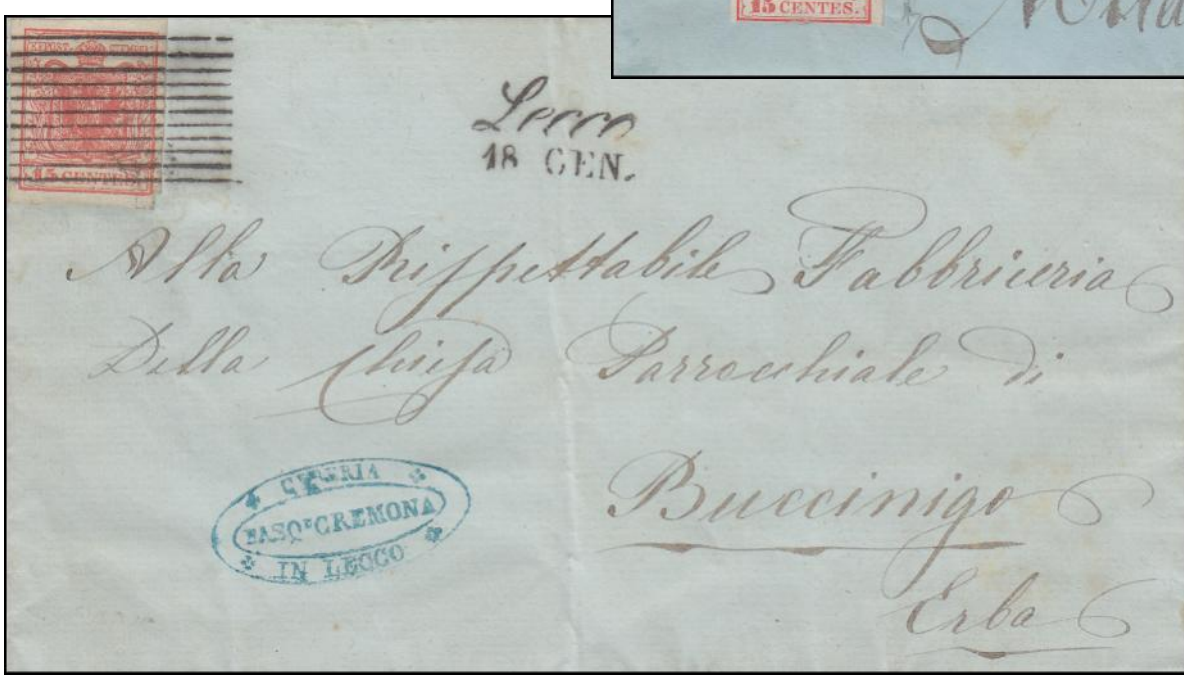 15 CENTES.
KPOST-STEMPEL
15 CENTES.
Lecco
18 GEN.
Alla Rispettabile Fabbriceria
Della Chiesa Parrocchiale di
Buccinigo
Erba
CERERIA
PASQ.E CREMONA
IN LECCO